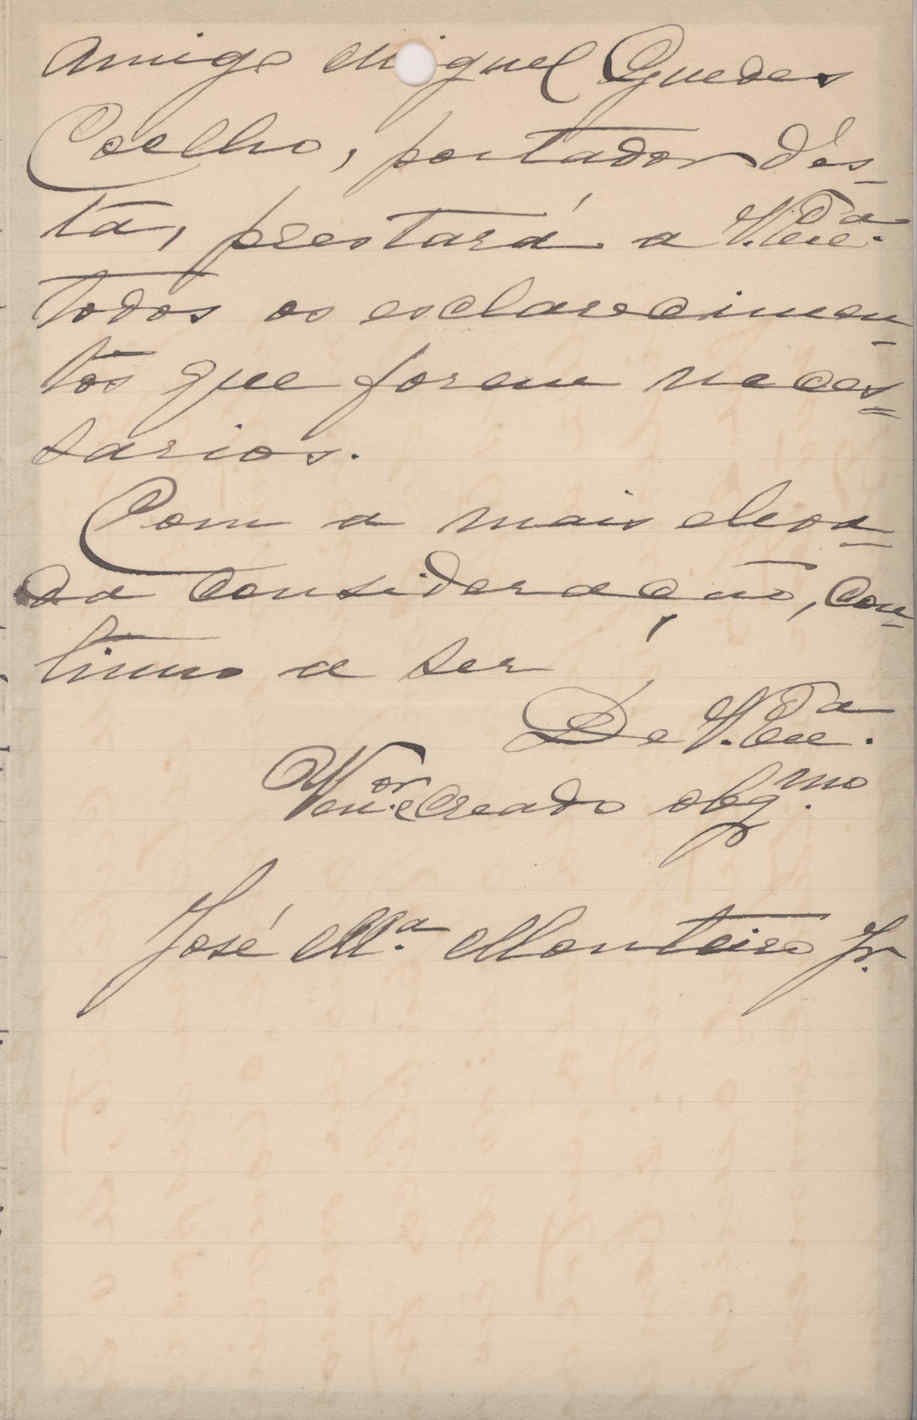 amigo Miguel Guedes
Coelho, portador d'es-
ta, prestará a V. Excia.
todos os esclarecimen-
tos que forem neces-
sarios.
Com a mais eleva-
da consideração, con-
tinuo a ser
De V. Excia.
Venor. e Creado obgmo.
José Ma. Monteiro Jr.